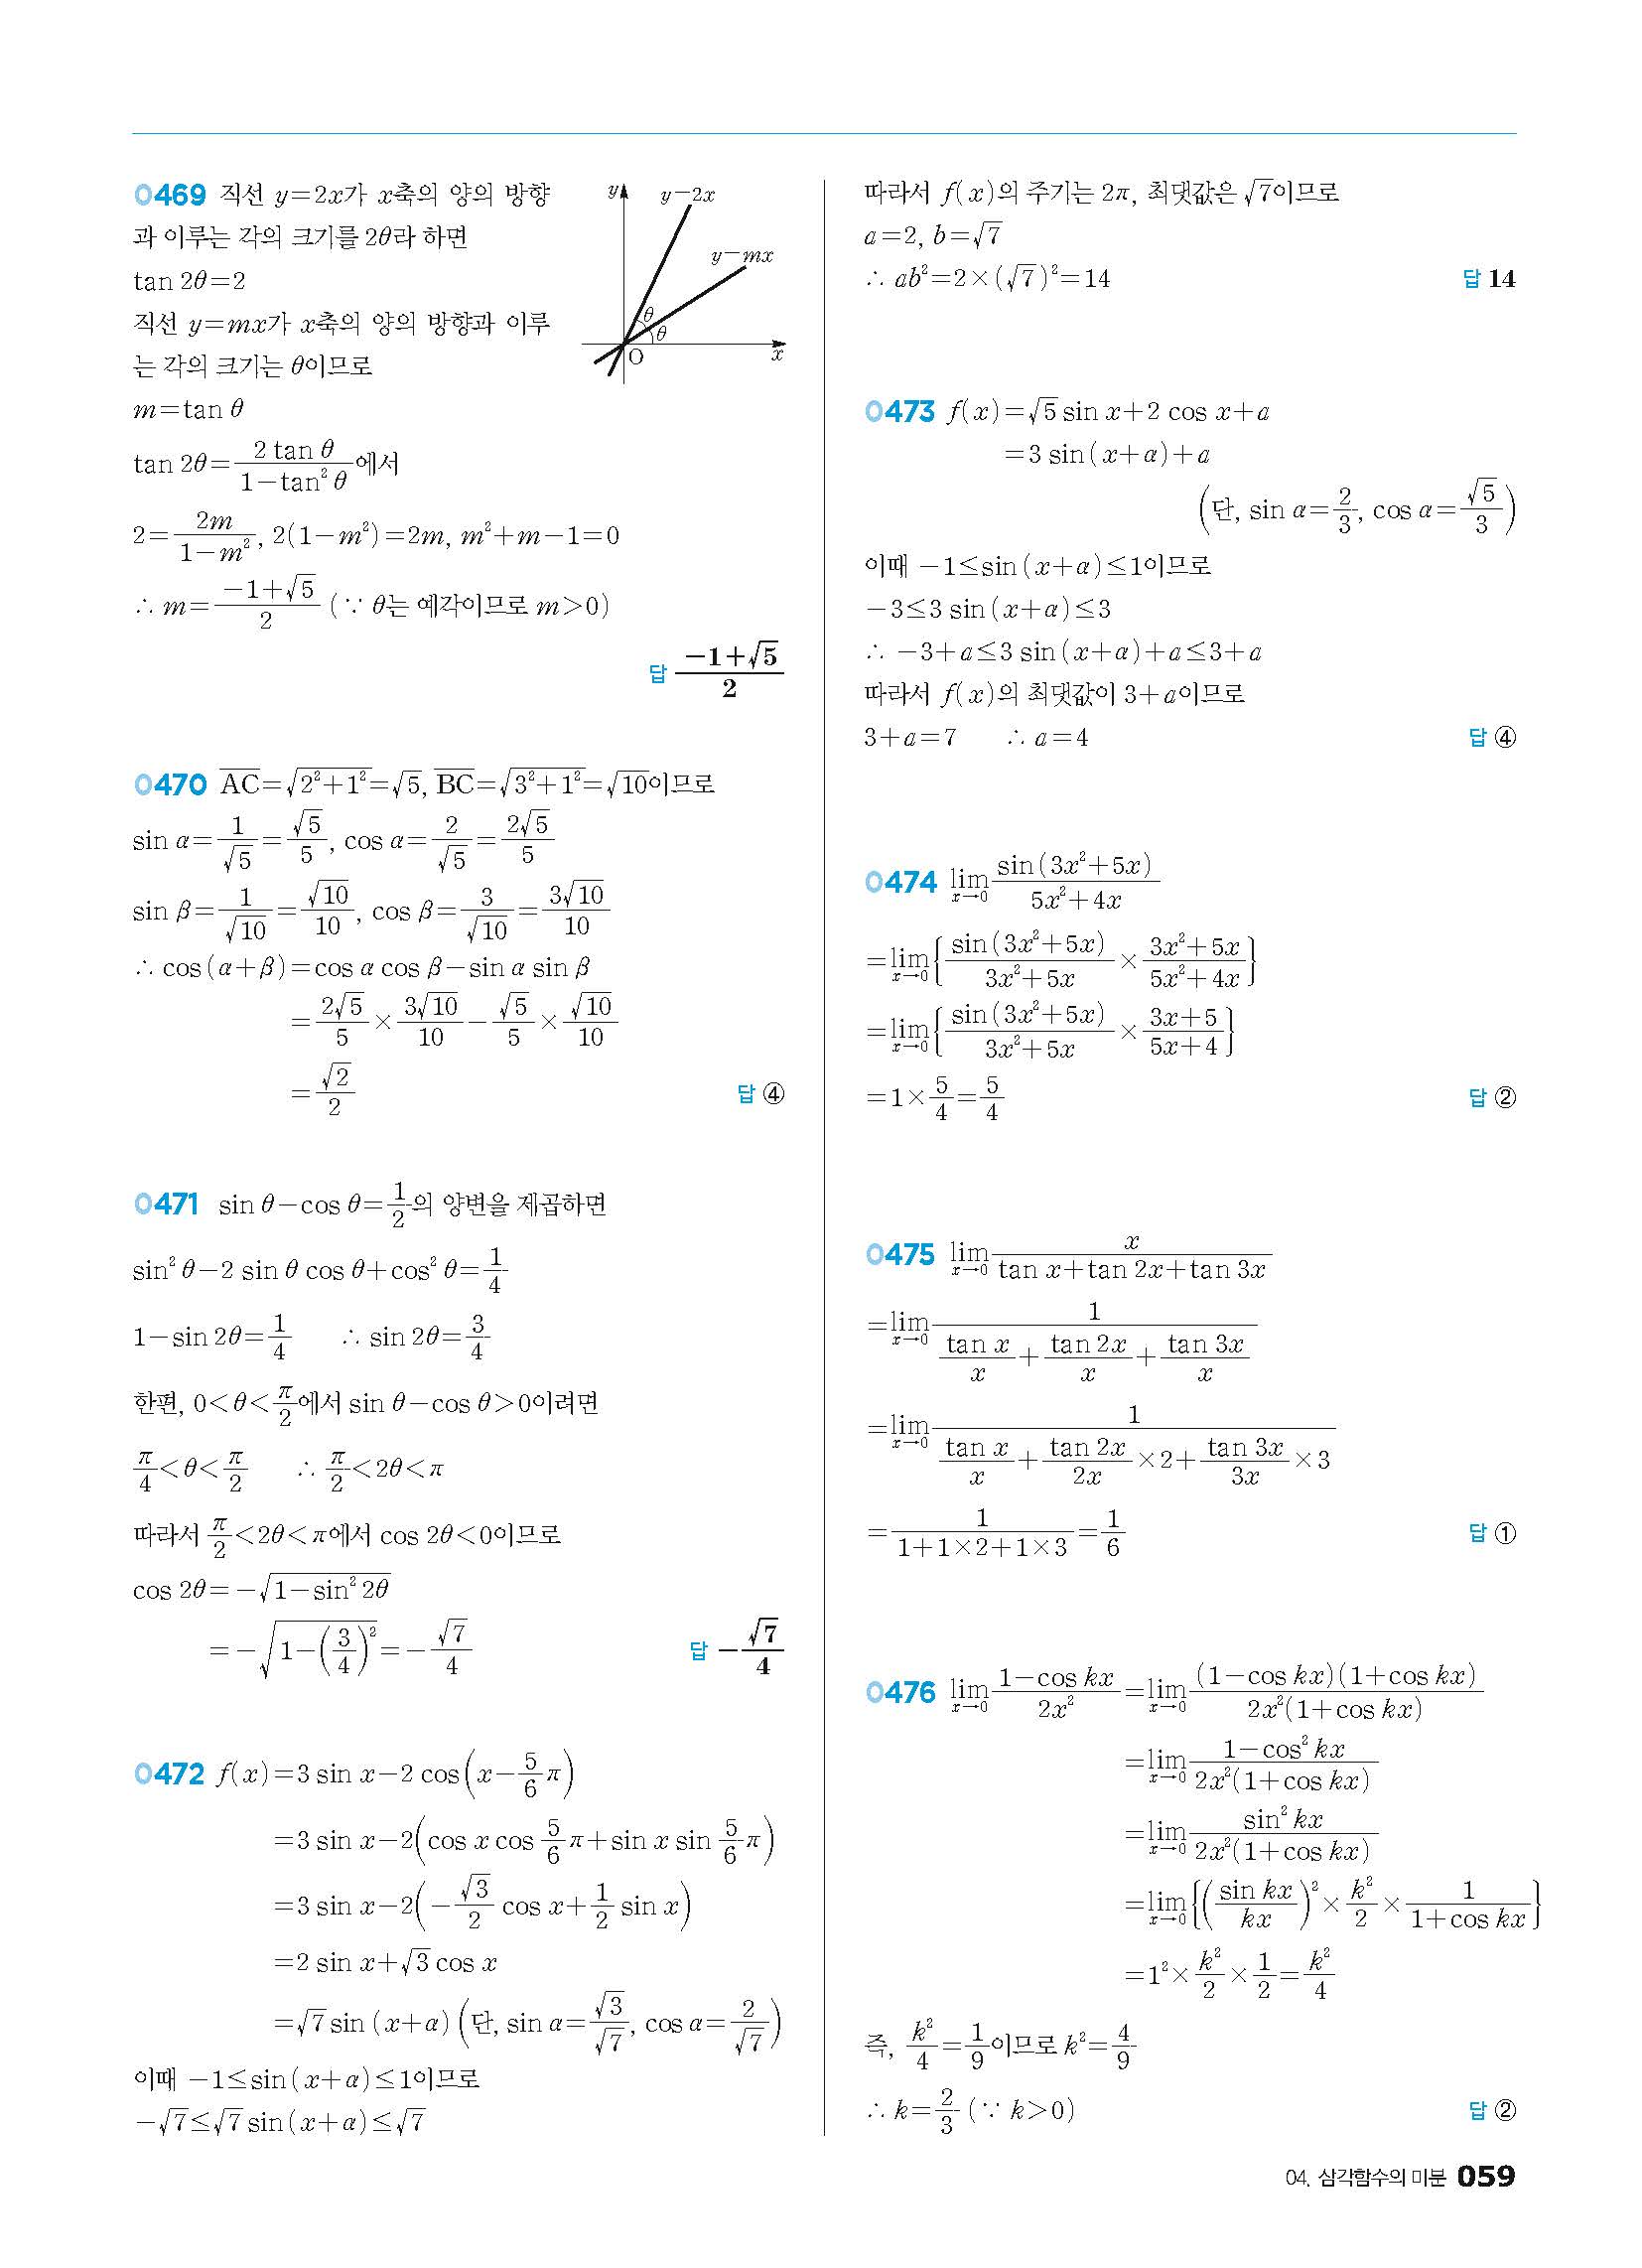 0469 직선 y=2x가 x축의 양의 방향
과 이루는 각의 크기를 2θ라 하면
tan 2θ=2
직선 y=mx가 x축의 양의 방향과 이루
는 각의 크기는 θ이므로
m=tan θ
y
y=2x
y=mx
θ
θ
O
x
tan 2θ=\frac{2 tan θ}{1-tan² θ}에서
2=\frac{2m}{1-m²}, 2(1-m²)=2m, m²+m-1=0
∴ m=\frac{-1+√5}{2} (∵ θ는 예각이므로 m>0)
답 \frac{-1+√5}{2}
0470 \overline{AC}=\sqrt{2²+1²}=√5, \overline{BC}=\sqrt{3²+1²}=√10이므로
sin α=\frac{1}{√5}=\frac{√5}{5}, cos α=\frac{2}{√5}=\frac{2√5}{5}
sin β=\frac{1}{√10}=\frac{√10}{10}, cos β=\frac{3}{√10}=\frac{3√10}{10}
∴ cos(α+β)=cos α cos β-sin α sin β
=\frac{2√5}{5}×\frac{3√10}{10}-\frac{√5}{5}×\frac{√10}{10}
=\frac{√2}{2} 답 ④
0471 sin θ-cos θ=\frac{1}{2}의 양변을 제곱하면
sin² θ-2 sin θ cos θ+cos² θ=\frac{1}{4}
1-sin 2θ=\frac{1}{4} ∴ sin 2θ=\frac{3}{4}
한편, 0<θ<\frac{π}{2}에서 sin θ-cos θ>0이려면
\frac{π}{4}<θ<\frac{π}{2} ∴ \frac{π}{2}<2θ<π
따라서 \frac{π}{2}<2θ<π에서 cos 2θ<0이므로
cos 2θ=-\sqrt{1-sin² 2θ}
=-\sqrt{1-(\frac{3}{4})²}=-\frac{√7}{4} 답 -\frac{√7}{4}
0472 f(x)=3 sin x-2 cos(x-\frac{5}{6}π)
=3 sin x-2(cos x cos \frac{5}{6}π+sin x sin \frac{5}{6}π)
=3 sin x-2(-\frac{√3}{2} cos x+\frac{1}{2} sin x)
=2 sin x+√3 cos x
=√7 sin (x+α) (단, sin α=\frac{√3}{√7}, cos α=\frac{2}{√7})
이때 -1≤sin(x+α)≤1이므로
-√7≤√7 sin(x+α)≤√7
따라서 f(x)의 주기는 2π, 최댓값은 √7이므로
a=2, b=√7
∴ ab²=2×(√7)²=14 답 14
0473 f(x)=√5 sin x+2 cos x+a
=3 sin(x+α)+a
(단, sin α=\frac{2}{3}, cos α=\frac{√5}{3})
이때 -1≤sin(x+α)≤1이므로
-3≤3 sin(x+α)≤3
∴ -3+a≤3 sin(x+α)+a≤3+a
따라서 f(x)의 최댓값이 3+a이므로
3+a=7 ∴ a=4 답 ④
0474 \lim_{x→0}\frac{sin(3x²+5x)}{5x²+4x}
=\lim_{x→0}{\frac{sin(3x²+5x)}{3x²+5x}×\frac{3x²+5x}{5x²+4x}}
=\lim_{x→0}{\frac{sin(3x²+5x)}{3x²+5x}×\frac{3x+5}{5x+4}}
=1×\frac{5}{4}=\frac{5}{4} 답 ②
0475 \lim_{x→0}\frac{x}{tan x+tan 2x+tan 3x}
=\lim_{x→0}\frac{1}{\frac{tan x}{x}+\frac{tan 2x}{x}+\frac{tan 3x}{x}}
=\lim_{x→0}\frac{1}{\frac{tan x}{x}+\frac{tan 2x}{2x}×2+\frac{tan 3x}{3x}×3}
=\frac{1}{1+1×2+1×3}=\frac{1}{6} 답 ①
0476 \lim_{x→0}\frac{1-cos kx}{2x²}=\lim_{x→0}\frac{(1-cos kx)(1+cos kx)}{2x²(1+cos kx)}
=\lim_{x→0}\frac{1-cos² kx}{2x²(1+cos kx)}
=\lim_{x→0}\frac{sin² kx}{2x²(1+cos kx)}
=\lim_{x→0}{(\frac{sin kx}{kx})²×\frac{k²}{2}×\frac{1}{1+cos kx}}
=1²×\frac{k²}{2}×\frac{1}{2}=\frac{k²}{4}
즉, \frac{k²}{4}=\frac{1}{9}이므로 k²=\frac{4}{9}
∴ k=\frac{2}{3} (∵ k>0) 답 ②
04. 삼각함수의 미분 059